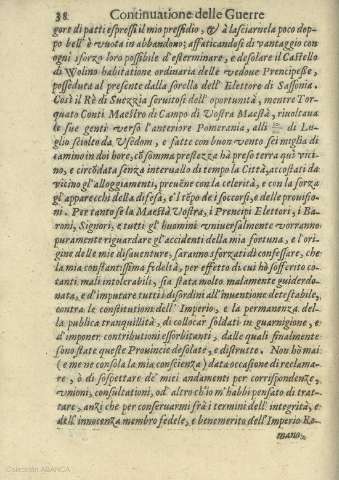 38. Continuatione delle Guerre
gore di patti espressi il mio pressidio, & à lasciarnela poco dop-
po bell' è vuota in abbandono; affaticandosi di vantaggio con
ogni sforzo loro possibile d'esterminare, e desolare il Castello
di Wolino habitatione ordinaria delle vedoue Prencipesse,
posseduta al presente dalla sorella dell' Elettore di Sassonia.
Così il Rè di Suezzia seruitosi dell' oportunità, mentre Tor-
quato Conti Maestro di Campo di Vostra Maestà, riuoltaua
le sue genti verso l'anteriore Pomerania, alli di Lu-
glio sciolto da Vsedom, e fatte con buon vento sei miglia di
camino in doi hore, cõ somma prestezza hà preso terra quì vici-
no, e circõdata senza interuallo di tempo la Città, accostati da
vicino gl'alloggiamenti, preuẽne con la celerità, e con la forza
gl'apparecchi della difesa, e'l tẽpo de i soccorsi, e delle prouisio-
ni. Per tanto se la Maestà Vostra, i Prencipi Elettori, i Ba-
roni, Signori, e tutti gl' huomini vniuersalmente vorranno
puramente riguardare gl'accidenti della mia fortuna, e l'ori-
gine delle mie disauenture, saranno sforzati di confessare, che
la mia constantissima fedeltà, per effetto di cui hò sofferto co-
tanti mali intolerabili, sia stata molto malamente guiderdo-
nata, e d'imputare tutti i disordini all'inuentione detestabile,
contra le constitutioni dell' Imperio, e la permanenza del-
la publica tranquillità, di collocar soldati in guarnigione, e
d'imponer contributioni essorbitanti, dalle quali finalmente
sono state queste Prouincie desolate, e distrutte. Non hò mai
(e me ne consola la mia conscienza) data occasione di reclama-
re, ò di sospettare de' miei andamenti per corrispondenze,
vnioni, consultationi, od' altro ch'io m' habbi pensato di trat-
tare, anzi che per conseruarmi frà i termini dell' integrità, e
dell' innocenza membro fedele, e benemerito dell' Imperio Ro-
mano,
Colección ABANCA